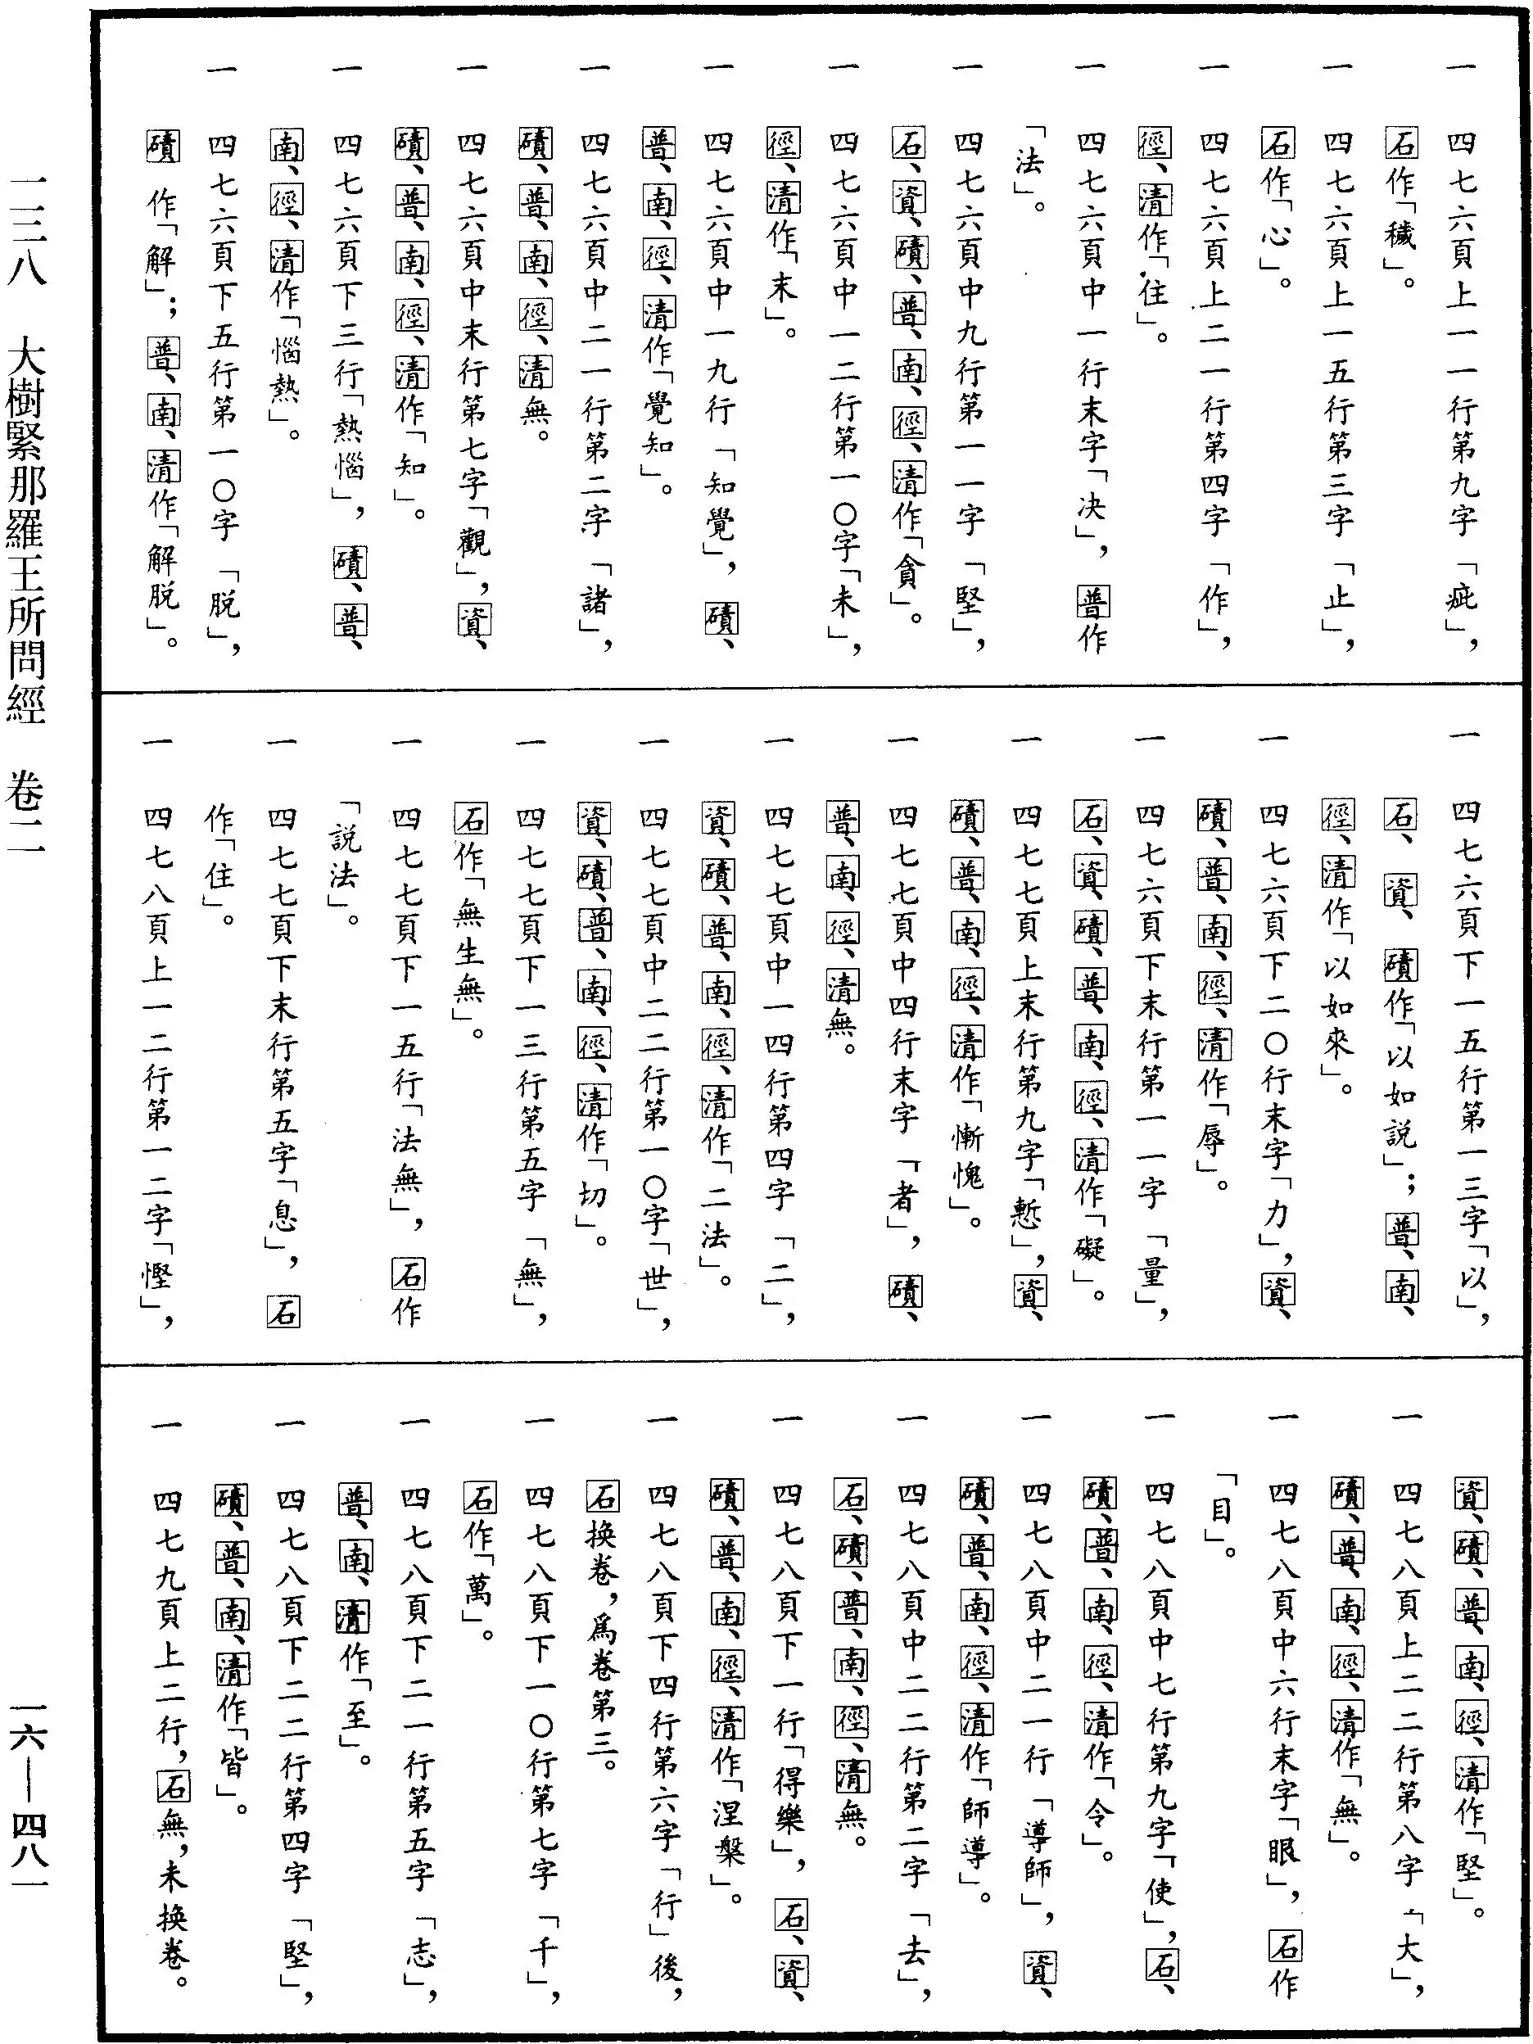 一　四七六頁上一一行第九字「疵」，
石作「穢」。
一　四七六頁上一五行第三字「止」，
石作「心」。
一　四七六頁上二一行第四字「作」，
徑、清作「住」。
一　四七六頁中一行末字「决」，普作
「法」。
一　四七六頁中九行第一一字「堅」，
石、資、磧、普、南、徑、清作「貪」。
一　四七六頁中一二行第一〇字「未」，
徑、清作「末」。
一　四七六頁中一九行「知覺」，磧、
普、南、徑、清作「覺知」。
一　四七六頁中二一行第二字「諸」，
磧、普、南、徑、清無。
一　四七六頁中末行第七字「觀」，資、
磧、普、南、徑、清作「知」。
一　四七六頁下三行「熱惱」，磧、普、
南、徑、清作「惱熱」。
一　四七六頁下五行第一〇字「脱」，
磧作「解」；普、南、清作「解脱」。
一　四七六頁下一五行第一三字「以」，
石、資、磧作「以如説」；普、南、
徑、清作「以如來」。
一　四七六頁下二〇行末字「力」，資、
磧、普、南、徑、清作「辱」。
一　四七六頁下末行第一一字「量」，
石、資、磧、普、南、徑、清作「礙」。
一　四七七頁上末行第九字「慙」，資、
磧、普、南、徑、清作「慚愧」。
一　四七七頁中四行末字「者」，磧、
普、南、徑、清無。
一　四七七頁中一四行第四字「二」，
資、磧、普、南、徑、清作「二法」。
一　四七七頁中二二行第一〇字「世」，
資、磧、普、南、徑、清作「切」。
一　四七七頁下一三行第五字「無」，
石作「無生無」。
一　四七七頁下一五行「法無」，石作
「説法」。
一　四七七頁下末行第五字「息」，石
作「住」。
一　四七八頁上一二行第一二字「慳」，
資、磧、普、南、徑、清作「堅」。
一　四七八頁上二二行第八字「大」，
磧、普、南、徑、清作「無」。
一　四七八頁中六行末字「眼」，石作
「目」。
一　四七八頁中七行第九字「使」，石、
磧、普、南、徑、清作「令」。
一　四七八頁中二一行「導師」，資、
磧、普、南、徑、清作「師導」。
一　四七八頁中二二行第二字「去」，
石、磧、普、南、徑、清無。
一　四七八頁下一行「得樂」，石、資、
磧、普、南、徑、清作「涅槃」。
一　四七八頁下四行第六字「行」後，
石换卷，爲卷第三。
一　四七八頁下一〇行第七字「千」，
石作「萬」。
一　四七八頁下二一行第五字「志」，
普、南、清作「至」。
一　四七八頁下二二行第四字「堅」，
磧、普、南、清作「皆」。
一　四七九頁上二行，石無，未换卷。
一三八　大樹緊那羅王所問經　卷二　一六—四八一